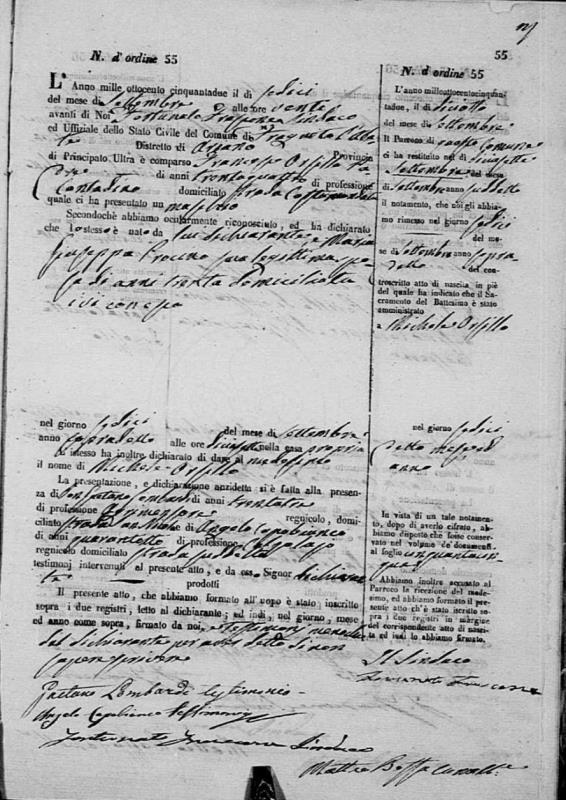 55
N. d'ordine 55
L'Anno mille ottocento cinquantadue il dì sedici
del mese di Settembre alle ore venti
avanti di Noi Fortunato Sindaco
ed Uffiziale dello Stato Civile del Comune di
Distretto di Ariano Provincia
di Principato Ultra è comparso Francesco Orsillo
di anni trentaquattro di professione
Contadino domiciliato strada Costa
quale ci ha presentato un maschio
Secondochè abbiamo ocularmente riconosciuto, ed ha dichiarato
che lo stesso è nato da lui dichiarante, e Maria
Giuseppa Procino sua legittima spo
sa di anni trenta domiciliata
ivi di con esso
nel giorno sedici del mese di Settembre
anno sopradetto alle ore nella casa propria
Lo stesso ha inoltre dichiarato di dare al medesimo
il nome di Michele Orsillo
La presentazione, e dichiarazione anzidetta si è fatta alla presen-
za di Gaetano Lombardi di anni trentatre
di professione regnicolo, domi-
ciliato strada di Angelo Capobianco
di anni quarantotto di professione
regnicolo domiciliato strada
testimoni intervenuti al presente atto, e da esso Signor dichiaran
te prodotti
Il presente atto, che abbiamo formato all'uopo è stato inscritto
sopra i due registri, letto al dichiarante, ed indi, nel giorno, mese
ed anno come sopra, firmato da noi, e testimoni
dal dichiarante per aver detto di non
saper scrivere
Gaetano Lombardi testimonio
Angelo Capobianco testimonio
Fortunato Sindaco
N. d'ordine 55
L'anno milleottocentocinquan-
tadue, il dì diciotto
del mese di Settembre
Il Parroco di
ci ha restituito nel dì diciassette
Settembre del mese
di Settembre anno suddetto
il notamento, che noi gli abbia-
mo rimesso nel giorno sedici
del me-
se di Settembre anno sopra
detto del con-
troscritto atto di nascita, in piè
del quale ha indicato che il Sa-
cramento del Battesimo è stato
amministrato
a Michele Orsillo
nel giorno sedici
detto mese ed
anno
In vista di un tale notamen-
to, dopo di averlo cifrato, ab-
biamo disposto che fosse conser-
vato nel volume de' documenti
al foglio cinquantacin
que
Abbiamo inoltre accusato al
Parroco la ricezione del mede-
simo, ed abbiamo formato il pre-
sente atto ch'è stato iscritto so-
pra i due registri in margine
del corrispondente atto di nasci-
ta ed indi lo abbiamo firmato.
Il Sindaco
Fortunato
Matteo Boffa